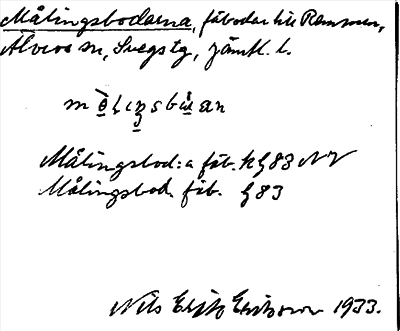 Målingsbodarna, fäbodar till Remmen,
Älvros sn, Svegs tg, Jämtl. l.
Målingsbod:a fäb. k g 83 NV
Målingsbod. fäb. g 83
Nils Erik Eriksson 1933.